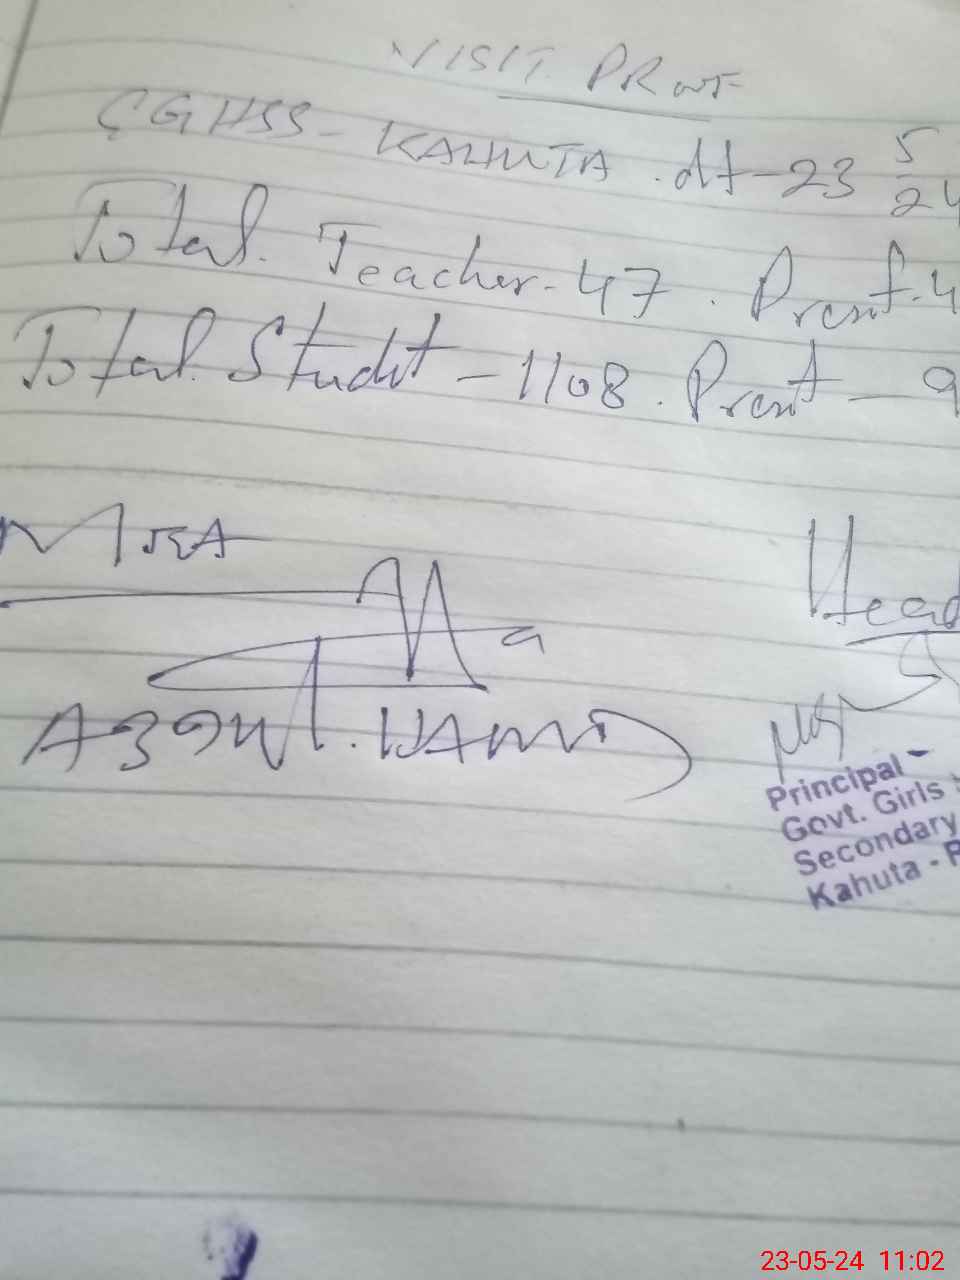 VISIT PROOF
GGHSS - KAHUTA . dt - 23 5/24
Total. Teacher - 47 . Presnt - 4
Total. Studt - 1108 . Presnt - 9
MEA
Head
Principal -
Govt. Girls
Secondary
Kahuta - P
23-05-24 11:02